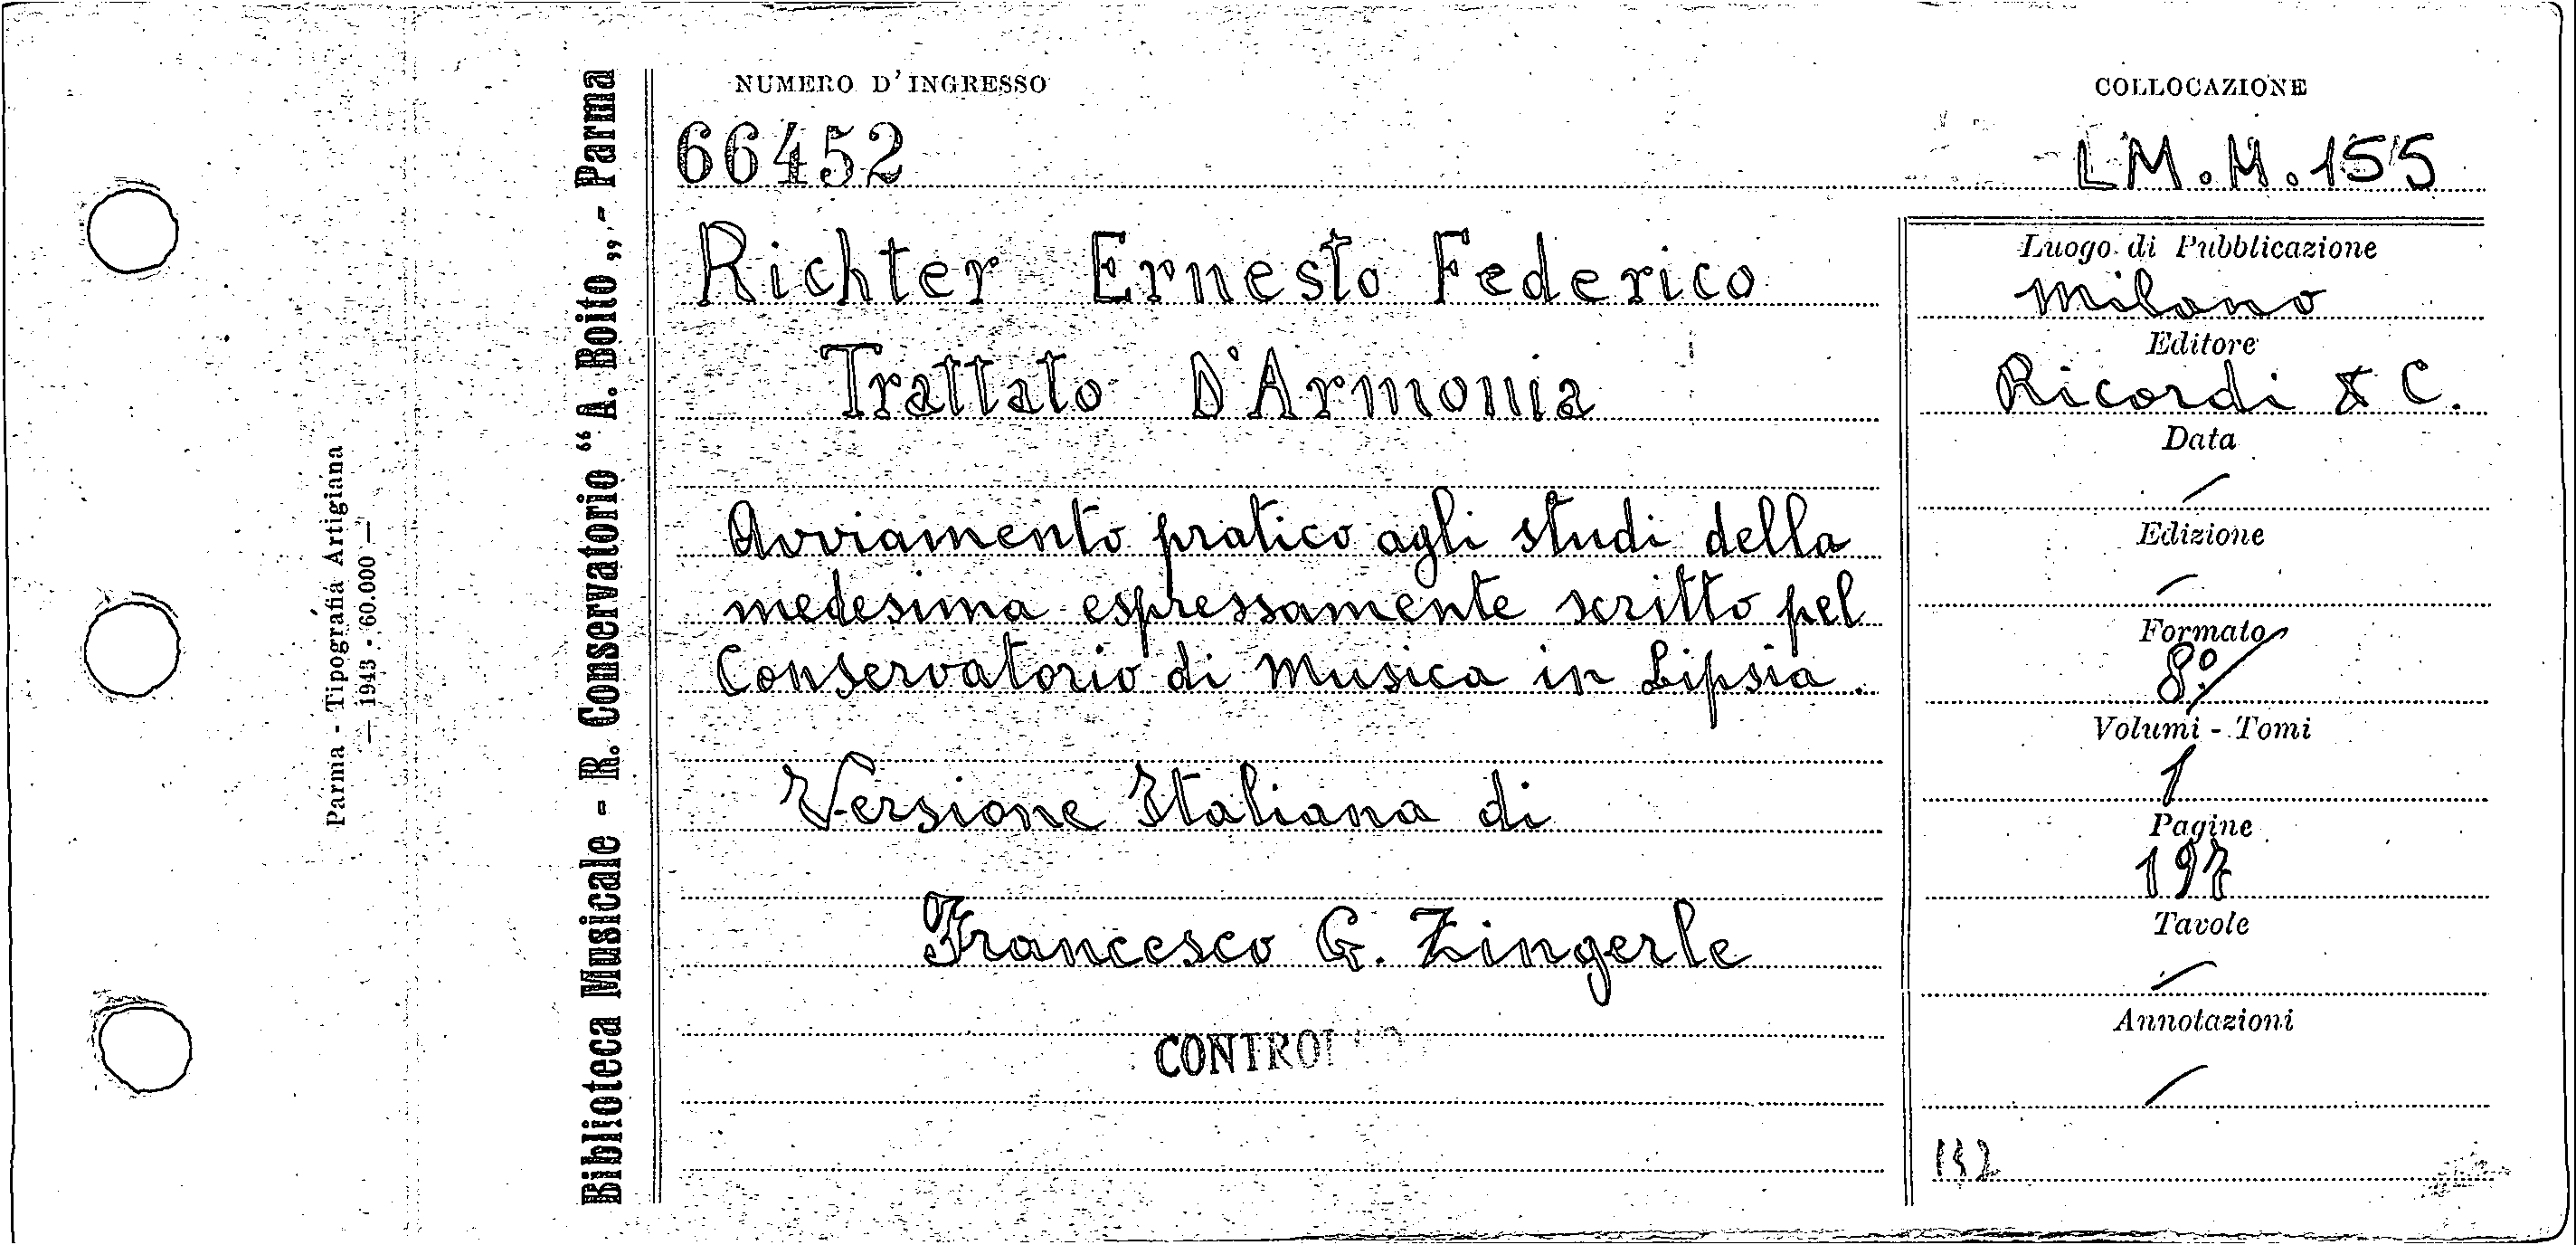 NUMERO D'INGRESSO
66452
COLLOCAZIONE
LM.H.155
Richter Ernesto Federico
Trattato D'Armonia
Avviamento pratico agli studi della
medesima espressamente scritto pel
Conservatorio di Musica in Lipsia.
Versione Italiana di
Francesco G. Zingerle
Luogo di Pubblicazione
Milano
Editore
Ricordi & C.
Data
Edizione
Formato
8º
Volumi - Tomi
1
Pagine
197
Tavole
Annotazioni
Biblioteca Musicale - R. Conservatorio “ A. Boito „ - Parma
Parma - Tipografia Artigiana
— 1943 - 60.000 —